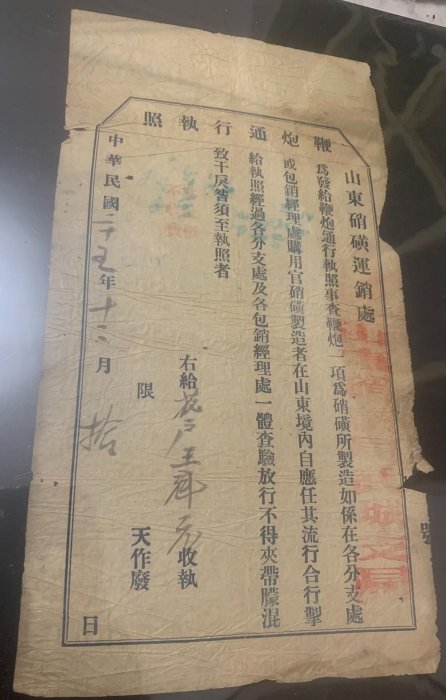 鞭炮通行執照
山東硝磺運銷處
為發給鞭炮通行執照事查鞭炮一項為硝磺所製造如係在各分支處
或包銷經理處購用官硝磺製造者在山東境內自應任其流行合行掣
給執照經過各分支處及各包銷經理處一體查驗放行不得夾帶朦混
致干戾咎須至執照者
右給花戶王 收執
限 拾 天作廢
中華民國二十五年十二月 日
號